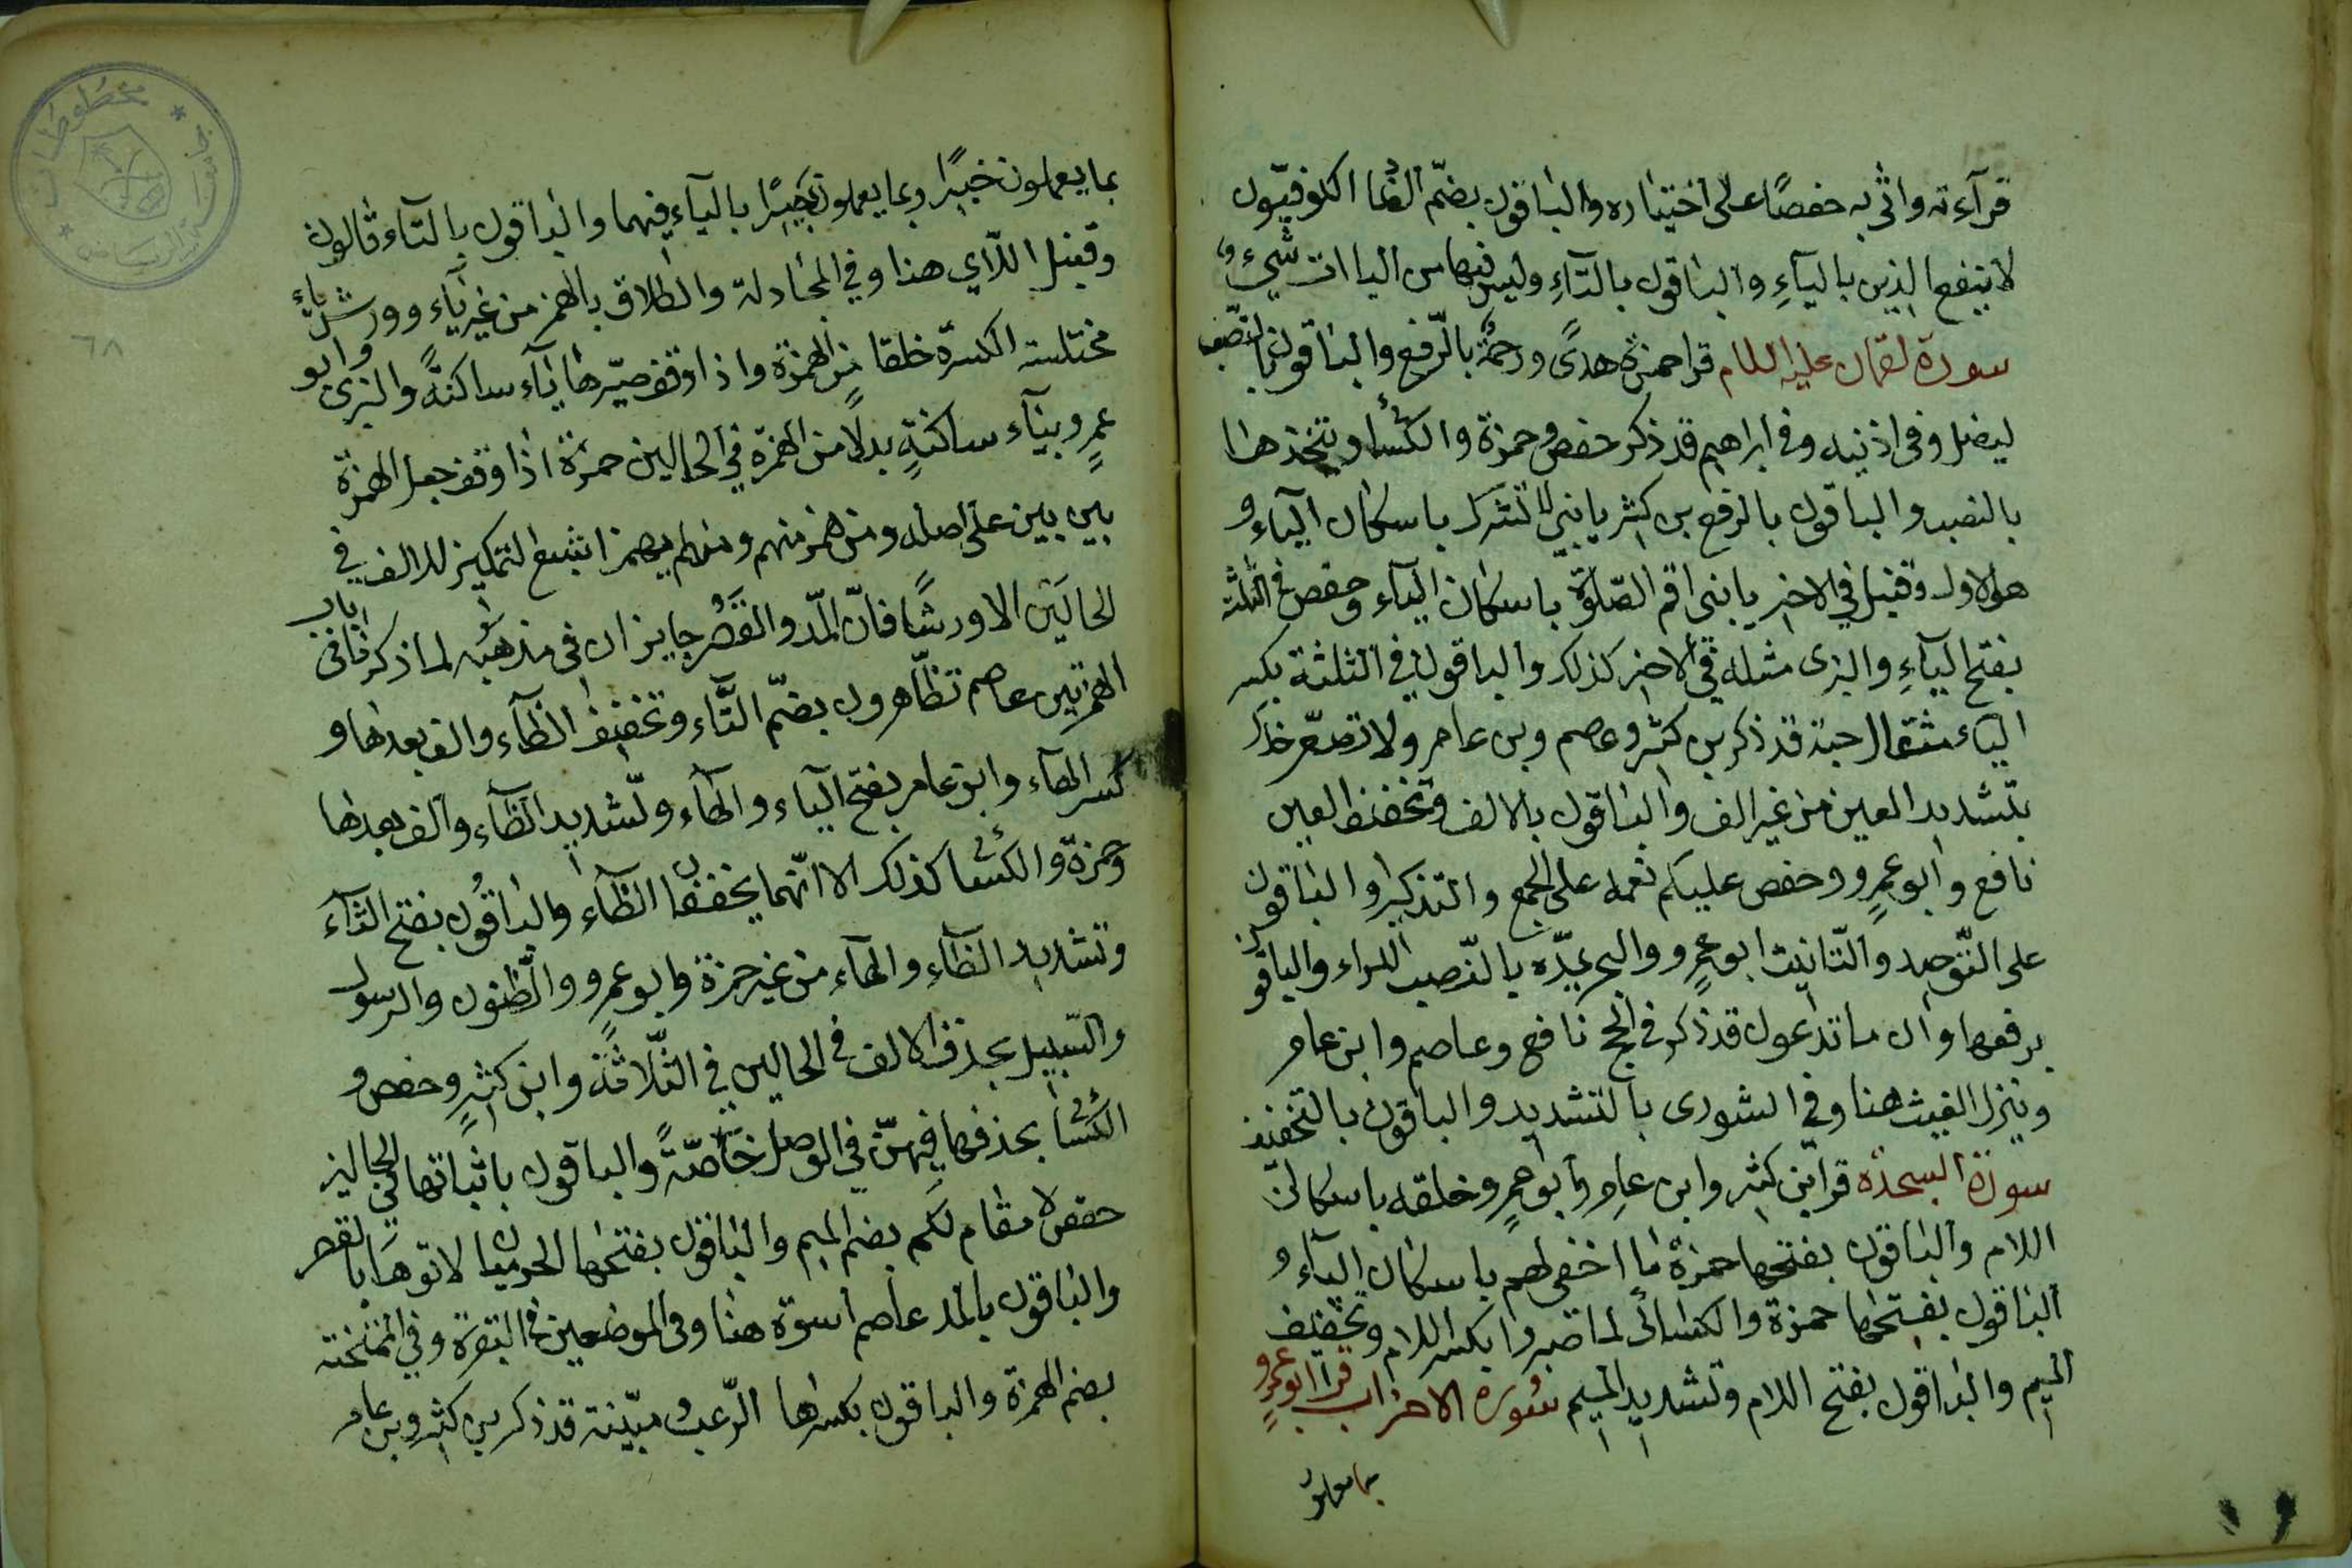 قرآءته واثى به حفصًا على اختياره والباقون بضمّ الضاد الكوفيّون
لا ينفع الذين باليآءِ والباقون بالتآءِ وليس فيها من الياات شيءٌ
سورة لقمان عليه السلام قرا حمزة هدًى ورحمةٌ بالرّفع والباقون بالنصب
ليضل وفى اذنيه وفى ابراهيم قد ذكر حفص وحمزة والكسائى ويتخذها
بالنصب والباقون بالرفع بن كثير يا بنىّ لا تشرك باسكان اليآء و
هو الاول وقنبل فى الاخير يا بنى اقم الصّلوة باسكان اليآء وحفص فى الثلثة
بفتح اليآءِ والبزى مثله فى الاخير كذلك والباقون فى الثلثة بكسر
اليآء مثقال حبة قد ذكر بن كثير وعصم وبن عامر ولا تصعّر خدّك
بتشديد العين من غير الف والباقون بالالف وتخفيف العين
نافع وابو عمرٍو وحفص عليكم نعمه على الجمع والتذكير والباقون
على التّوحيد والتّانيث ابو عمرٍو والبحر يمدّه بالنّصب الراء والباقون
برفعها وان ما تدعون قد ذكر فى الحج نافع وعاصم وابن عامر
وينزل الغيث هنا وفى الشورى بالتشديد والباقون بالتخفيف
سورة السجده قرا بن كثير وابن عامر وابو عمرٍو خلقه باسكان
اللام والباقون بفتحها حمزة ما اخفى لهم باسكان اليآء و
الباقون بفتحها حمزة والكسائى لما صبروا بكسر اللام وتخفيف
الميم والباقون بفتح اللام وتشديد الميم سورة الاحزاب قرا ابو عمرٍو
بما يعملون
بما يعملون خبيرًا وبما يعملون بصيرًا باليآء فيهما والباقون بالتآء قالون
وقنبل اللآي هنا وفي المجادلة والطلاق بالهمز من غير يآء وورش بياء
مختلسة الكسرة خلفا من الهمزة واذا وقف صيّرها يآء ساكنةً والبزى وابو
عمرٍو بيآء ساكنةٍ بدلًا من الهمزة في الحالين حمزة اذا وقف جعل الهمزة
بين بين على اصله ومن همز منهم ومن لم يهمز اشبع التمكين للالف في
الحالَين الا ورشًا فانّ المّد والقَصْر جايزان فى مذهبه لما ذكرنا فى باب
الهمزتين عاصم تظّاهرون بضمّ التَّاء وتخفيف الظآء والف بعدها و
كسر الهآء وابن عامر بفتح اليآء والهآء وتشديد الظآء والف بعدها
وحمزة والكسائى كذلك الا انّهما يخففان الظآء والباقون بفتح التآء
وتشديد الظآءِ والهآءِ من غير حمزة وابو عمرٍو والّظنون والرسول
والسّبيل بحذف الالف فى الحالين في الثّلاثة وابن كثيرٍ وحفص و
الكسائى بحذفها فيهنّ في الوصل خآصّةً والباقون باثباتها في الحالين
حفص لا مقام لكم بضم الميم والباقون بفتحها الحرميان لاتوها بالقصر
والباقون بالمد عاصم اسوة هنا وفى الموضعين فى الممتحنة
بضم الهمزة والباقون بكسرها الرّعب ومبيّنة قد ذكر بن كثير وبن عامر
٦٨
مخطوطات